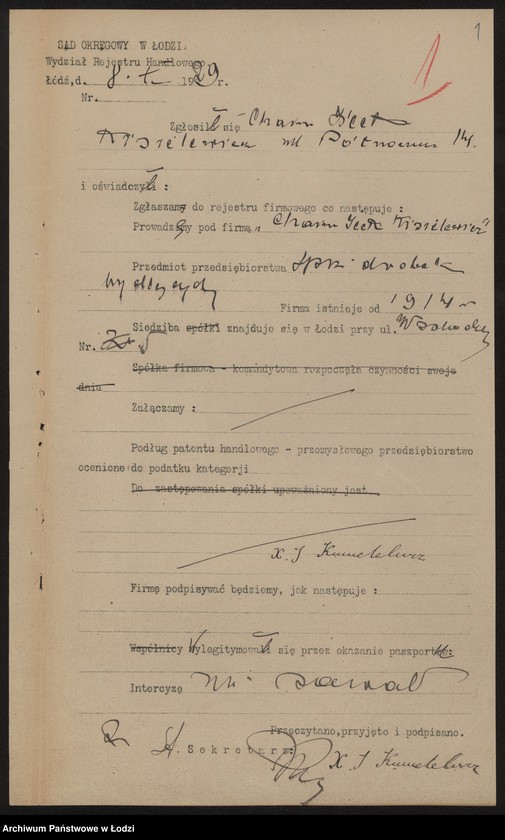 1
1
SĄD OKRĘGOWY W ŁODZI.
Wydział Rejestru Handlowego
Łódź, d. 8. I 1929 r.
Nr.
Zgłosił się Chaim Icek
ul Północna 14.
i oświadczył :
Zgłaszam do rejestru firmowego co następuje :
Prowadzę pod firmą „Chaim Icek
Przedmiot przedsiębiorstwa
Firma istnieje od 1914 r
Siedziba spółki znajduje się w Łodzi przy ul. Wschodniej
Nr. 5
Spółka firmowa - komandytowa rozpoczęła czynności swoje
dnia
Załączamy :
Podług patentu handlowego - przemysłowego przedsiębiorstwo
ocenione do podatku kategorji
Do zastępowania spółki upoważniony jest
X. J
Firmę podpisywać będziemy, jak następuje :
Wspólnicy wylegitymował się przez okazanie paszportu:
Intercyzę nie zawarł
Przeczytano, przyjęto i podpisano.
St. Sekretarz:
X. J
Archiwum Państwowe w Łodzi